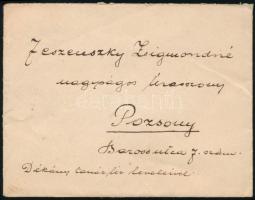 Jeszenszky Zigmondné
nagyságos úrasszony
Pozsony
Baross utca 7. szám.
Dékány tanár úr leveleivel